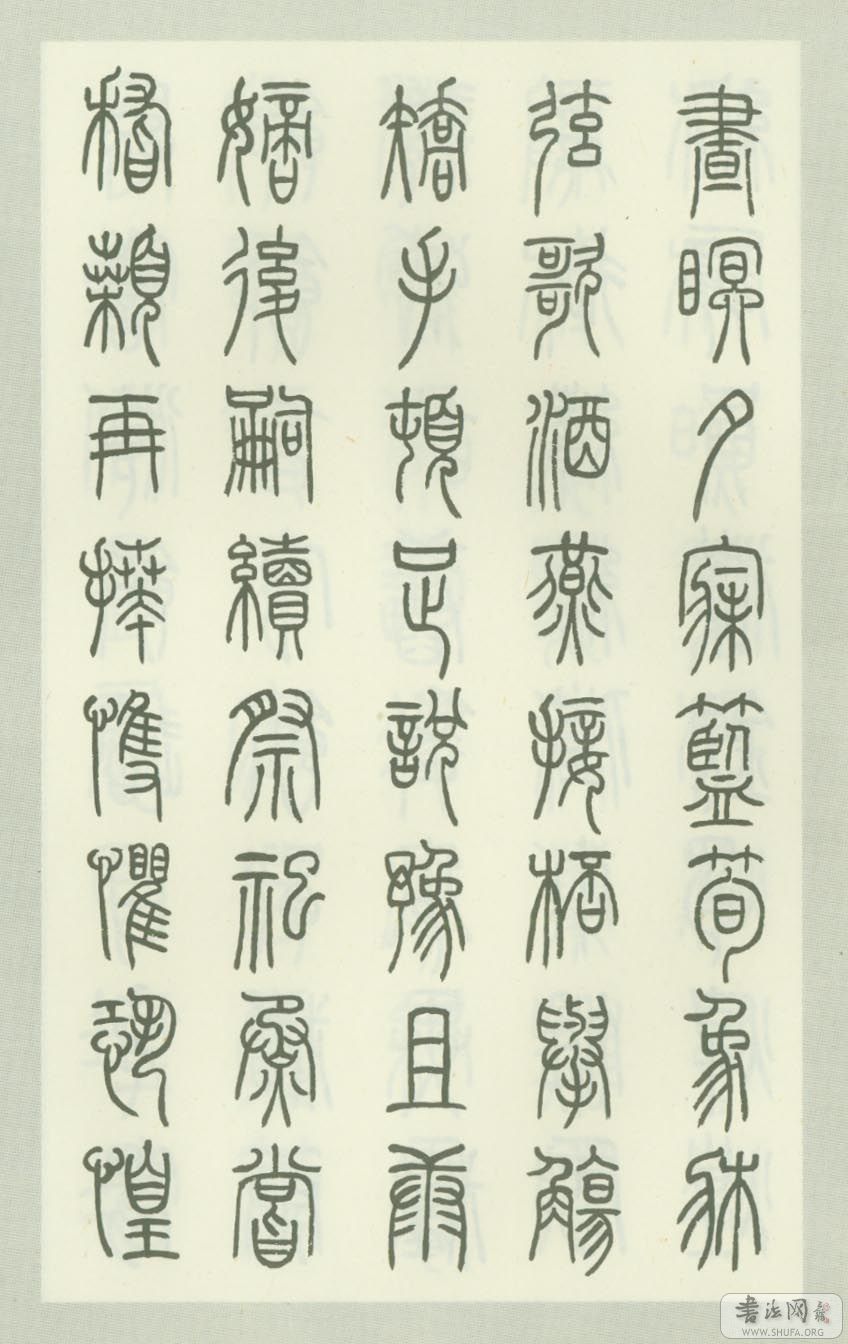 晝瞑夕寐藍筍象牀
弦歌酒燕接桮舉觴
矯手頓足說豫且康
嫡後嗣續祭祀烝嘗
稽顙再拜悚懼恐惶
書法网
WWW.SHUFA.ORG